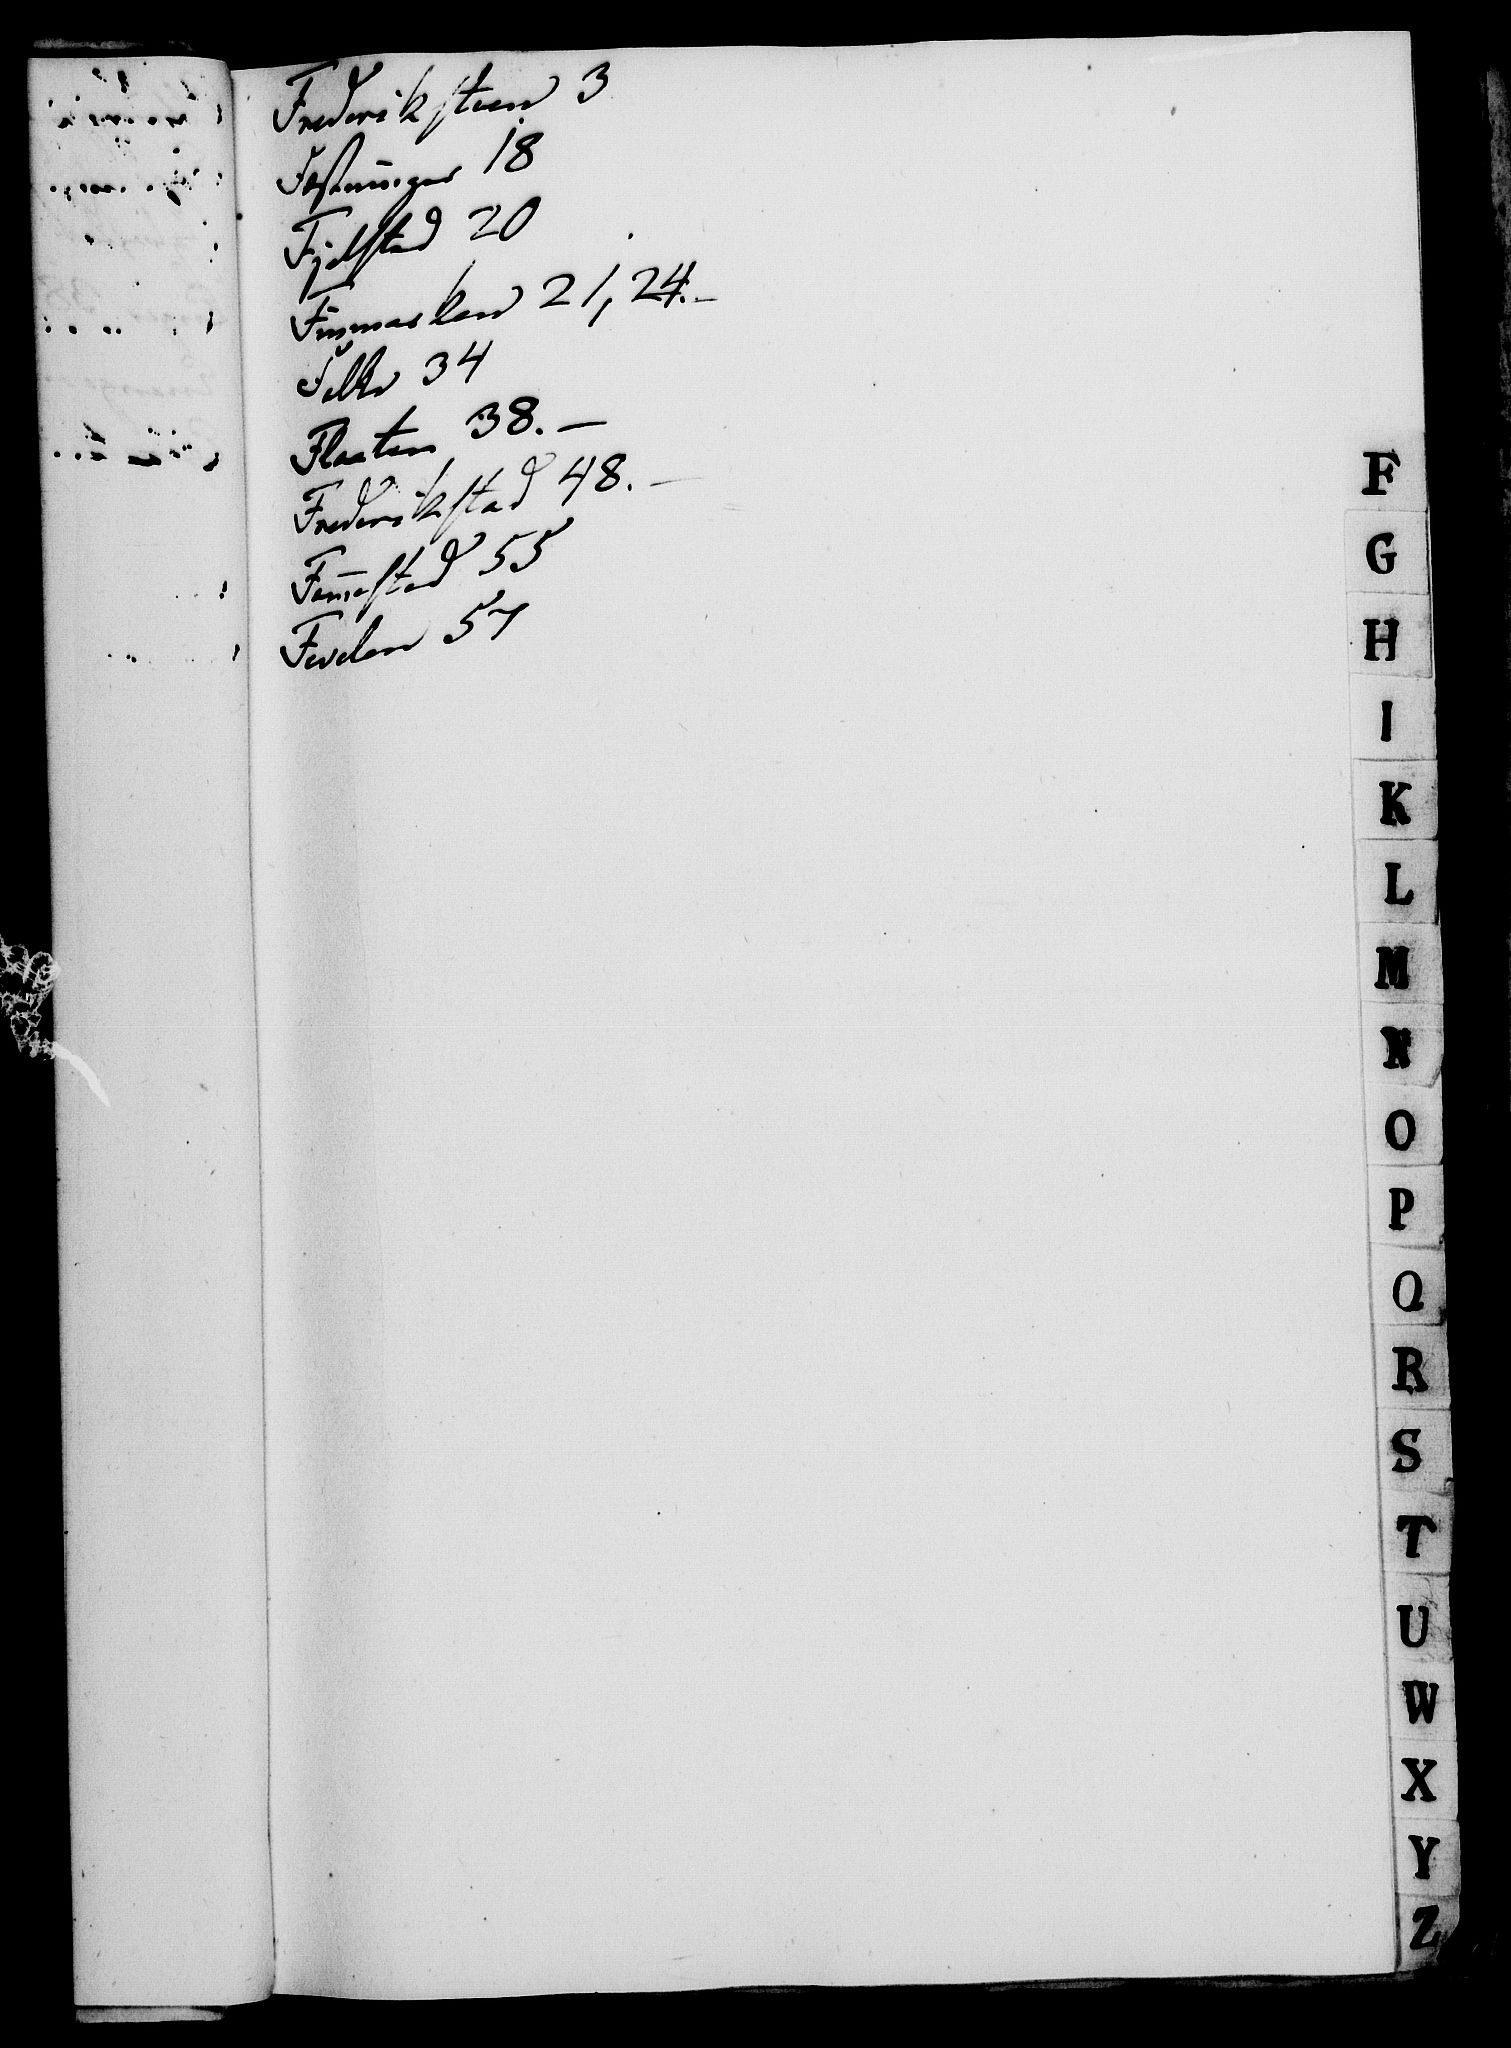 Frederiksteen 3
Fæstninger 18
Fjelstad 20
Finmarken 21, 24.-
Folke 34
Flaaten 38.-
Frederikstad 48.-
Famestad 55
Ferden 57
F
G
H
I
K
L
M
N
O
P
Q
R
S
T
U
W
X
Y
Z